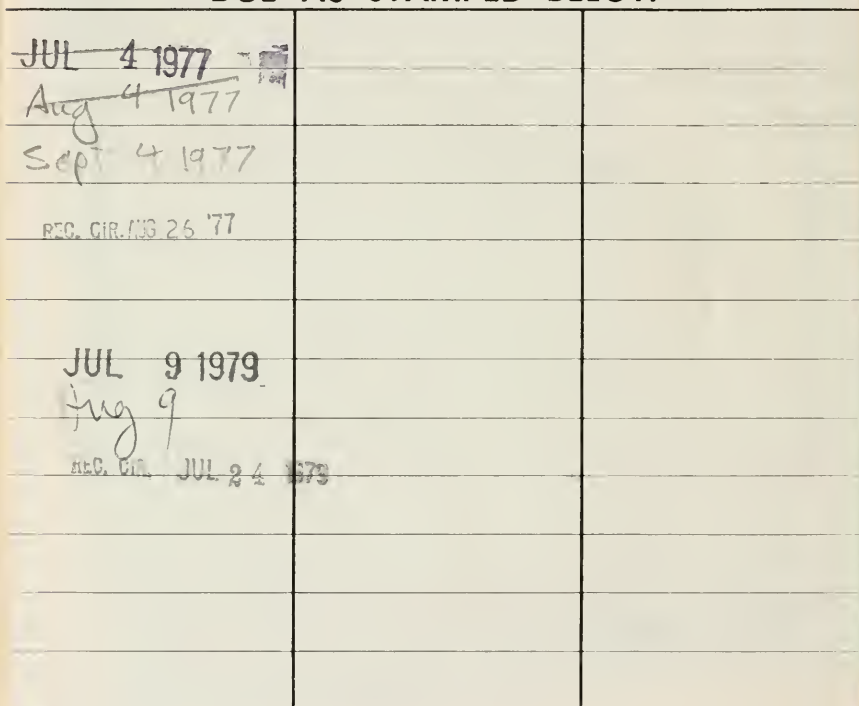 DUE AS STAMPED BELOW
JUL 4 1977
Aug 4 1977
Sept 4 1977
REC. CIR. AUG 26 '77
JUL 9 1979
Aug 9
REC. CIR. JUL 24 1979